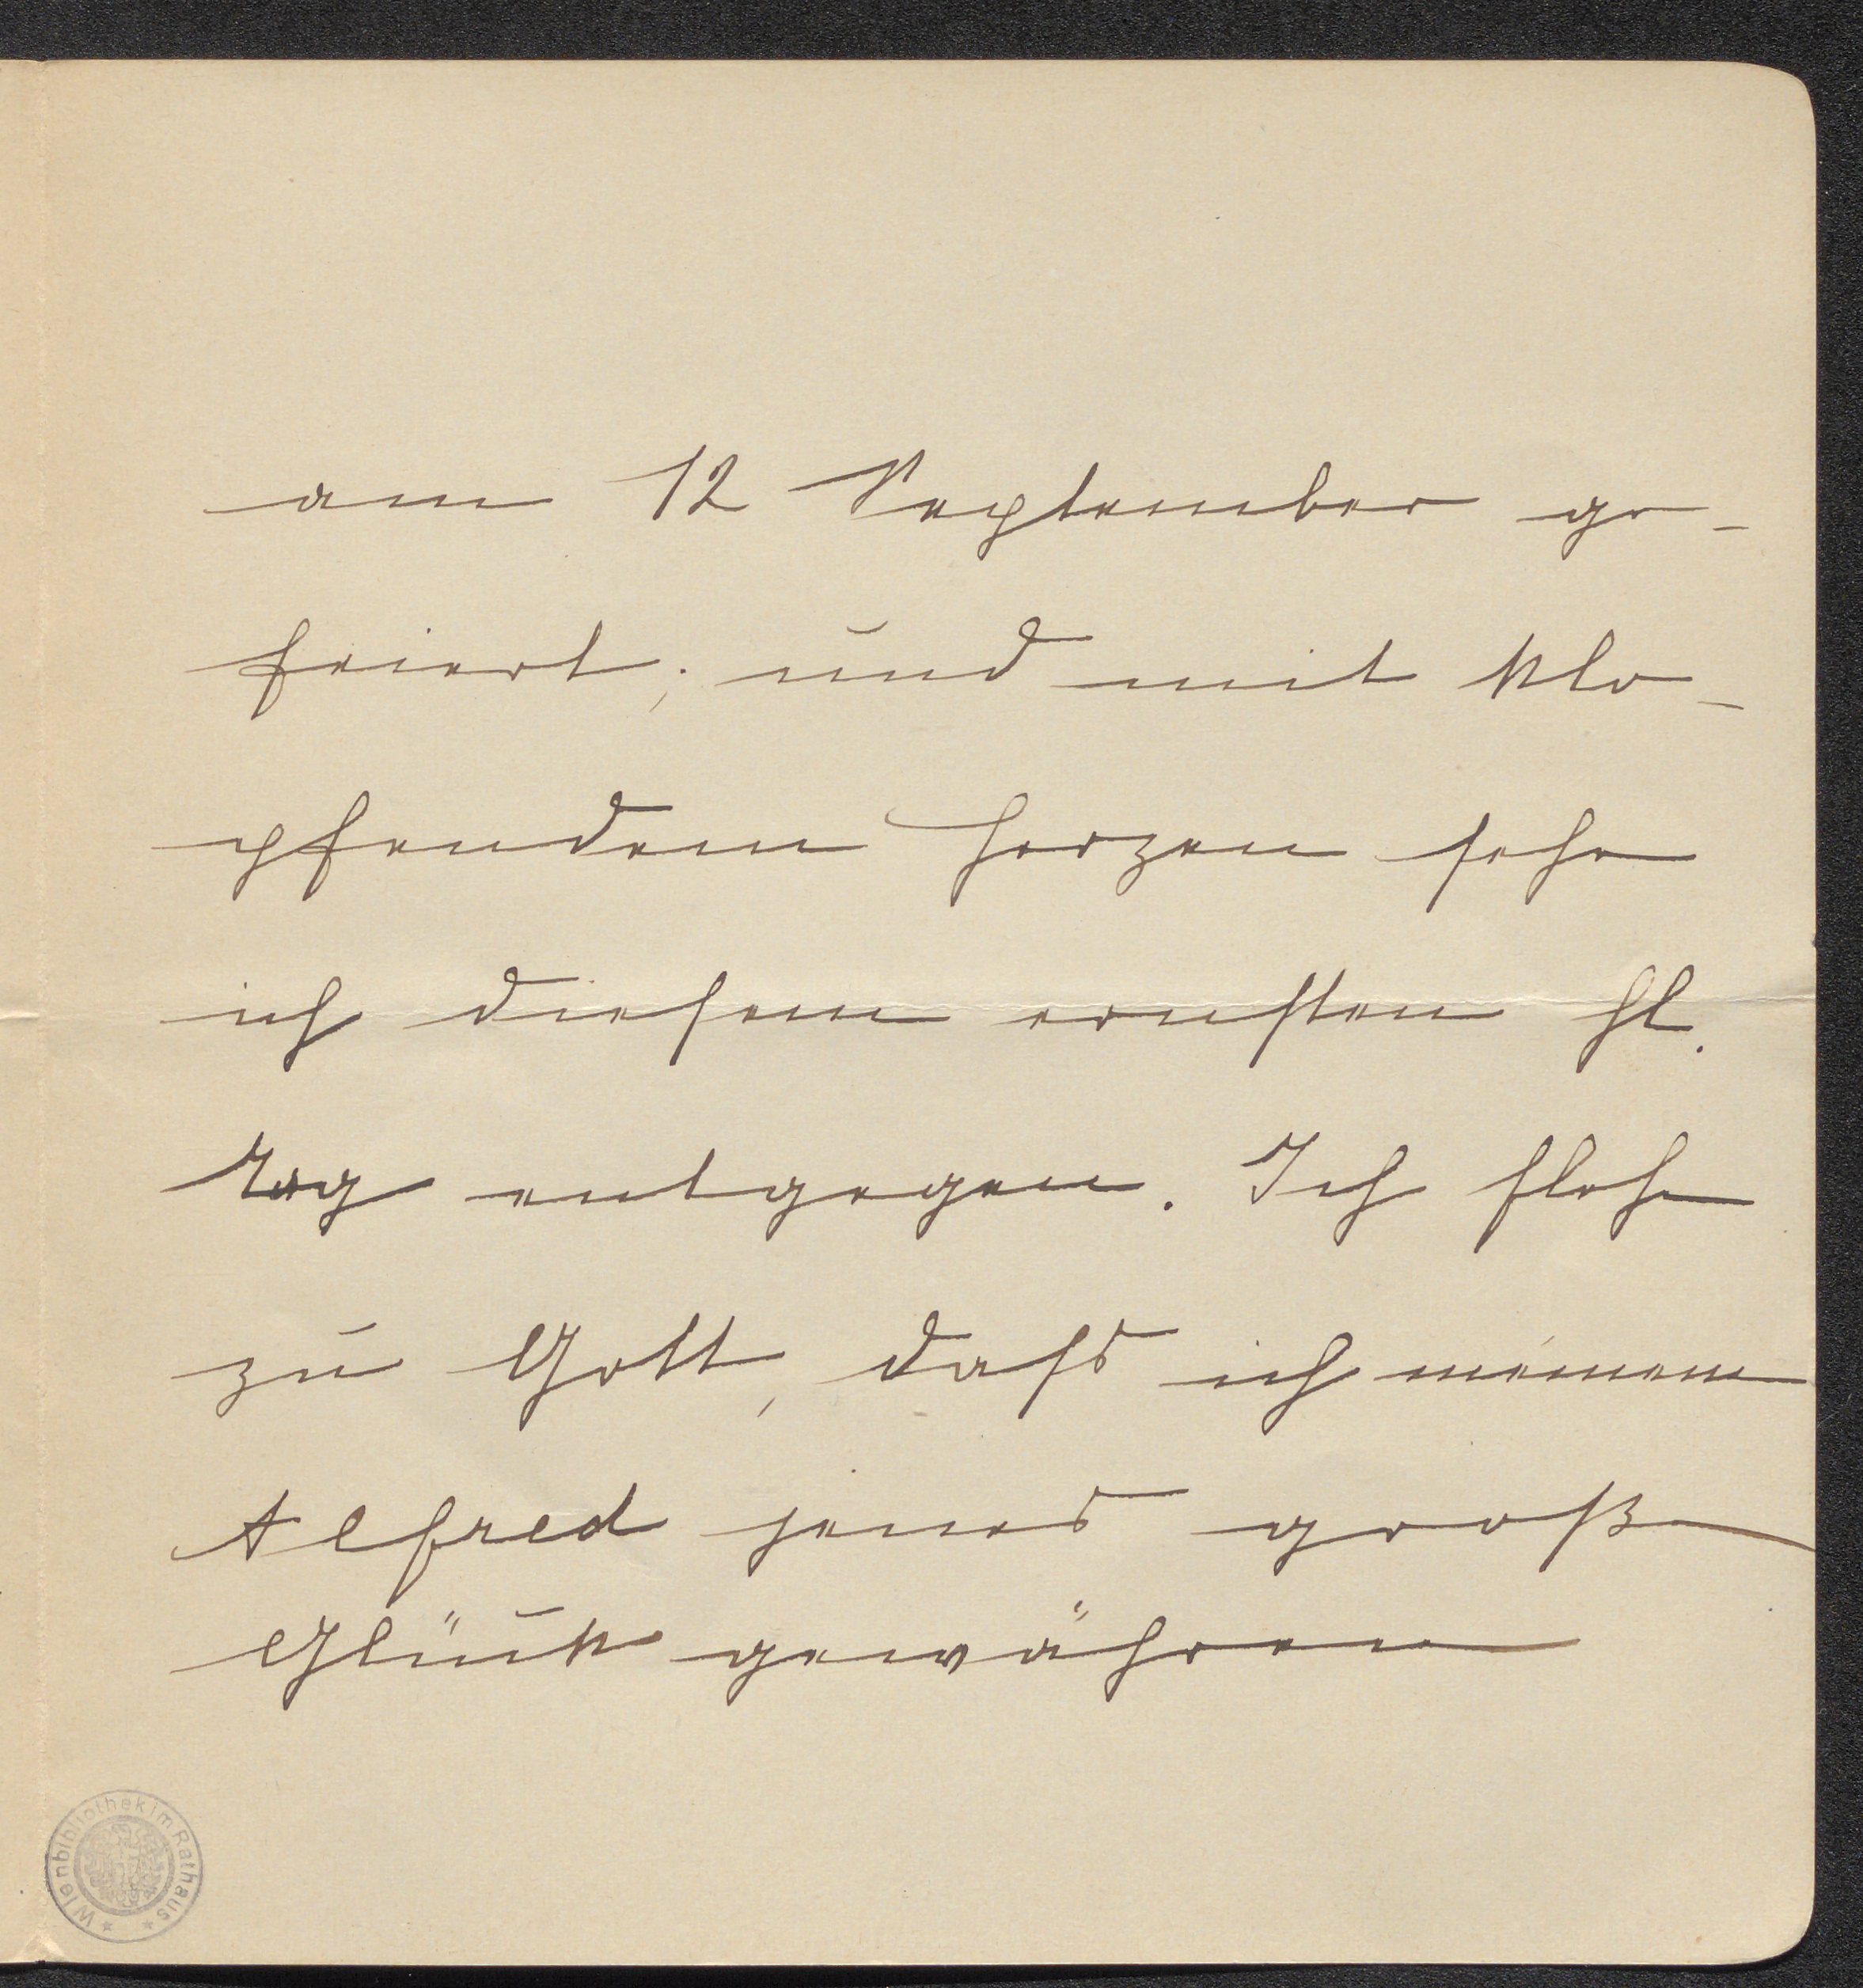 am 12 September ge-
feiert; und mit klo-
pfendem Herzen sehe
ich diesem ernsten hl.
Tag entgegen. Ich flehe
zu Gott, dass ich meinem
Alfred jenes große
Glück gewähren
Wienbibliothek im Rathaus